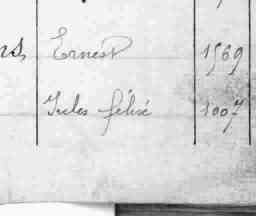 rs, Ernest 1969
Jules félix 1007